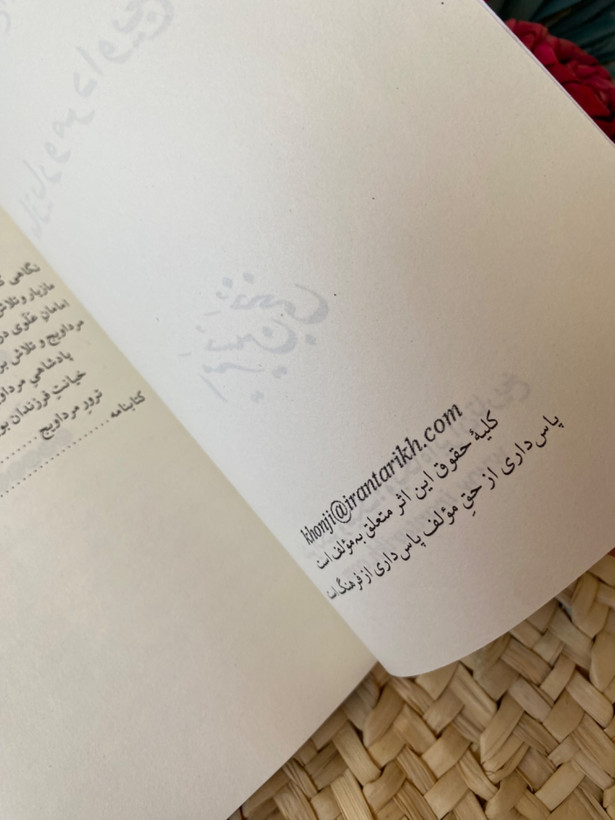 khonji@irantarikh.com
کلیهٔ حقوق این اثر متعلق به مؤلف است
پاس‌داری از حقِ مؤلف پاس‌داری از فرهنگ است
نگاهی
مازیار و تلاش
امامانِ عَلَوی در
مرداویج و تلاش
پادشاهیِ
خیانتِ فرزندان
ترورِ مرداویج
کتابنامه